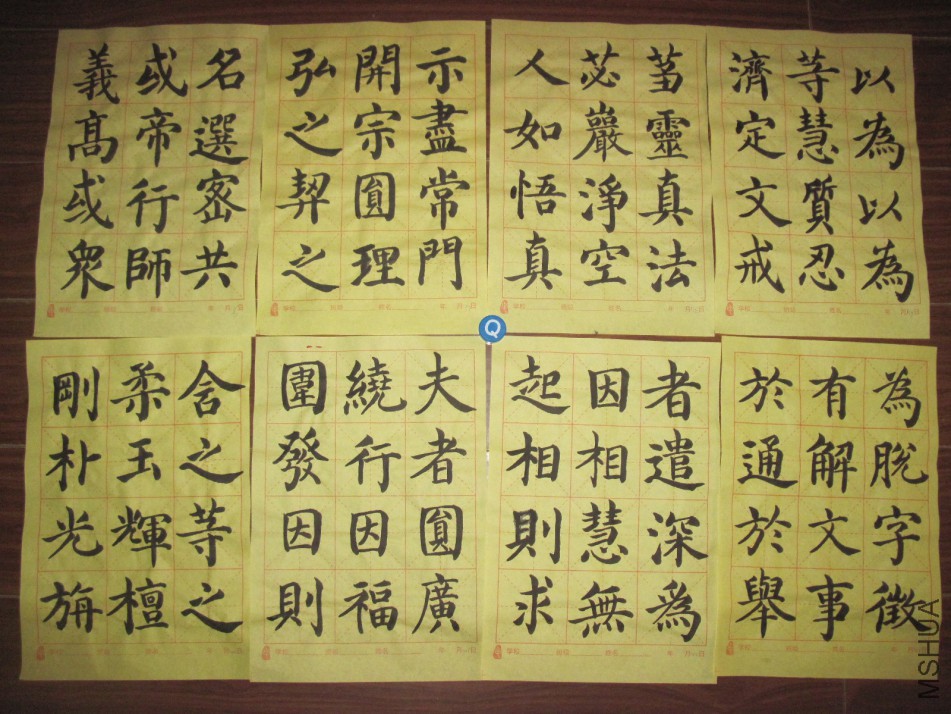 義或名
高帝選
或行密
眾師共
弘開示
之宗盡
契圓常
之理門
人苾芻
如嚴靈
悟淨真
真空法
濟等以
定慧為
文質以
戒忍為
剛柔含
朴玉之
光輝等
旃檀之
圍繞夫
發行者
因因圓
則福廣
起因者
相相遣
則慧深
求無為
於有為
通解脫
於文字
舉事徵
Q
MSHUA